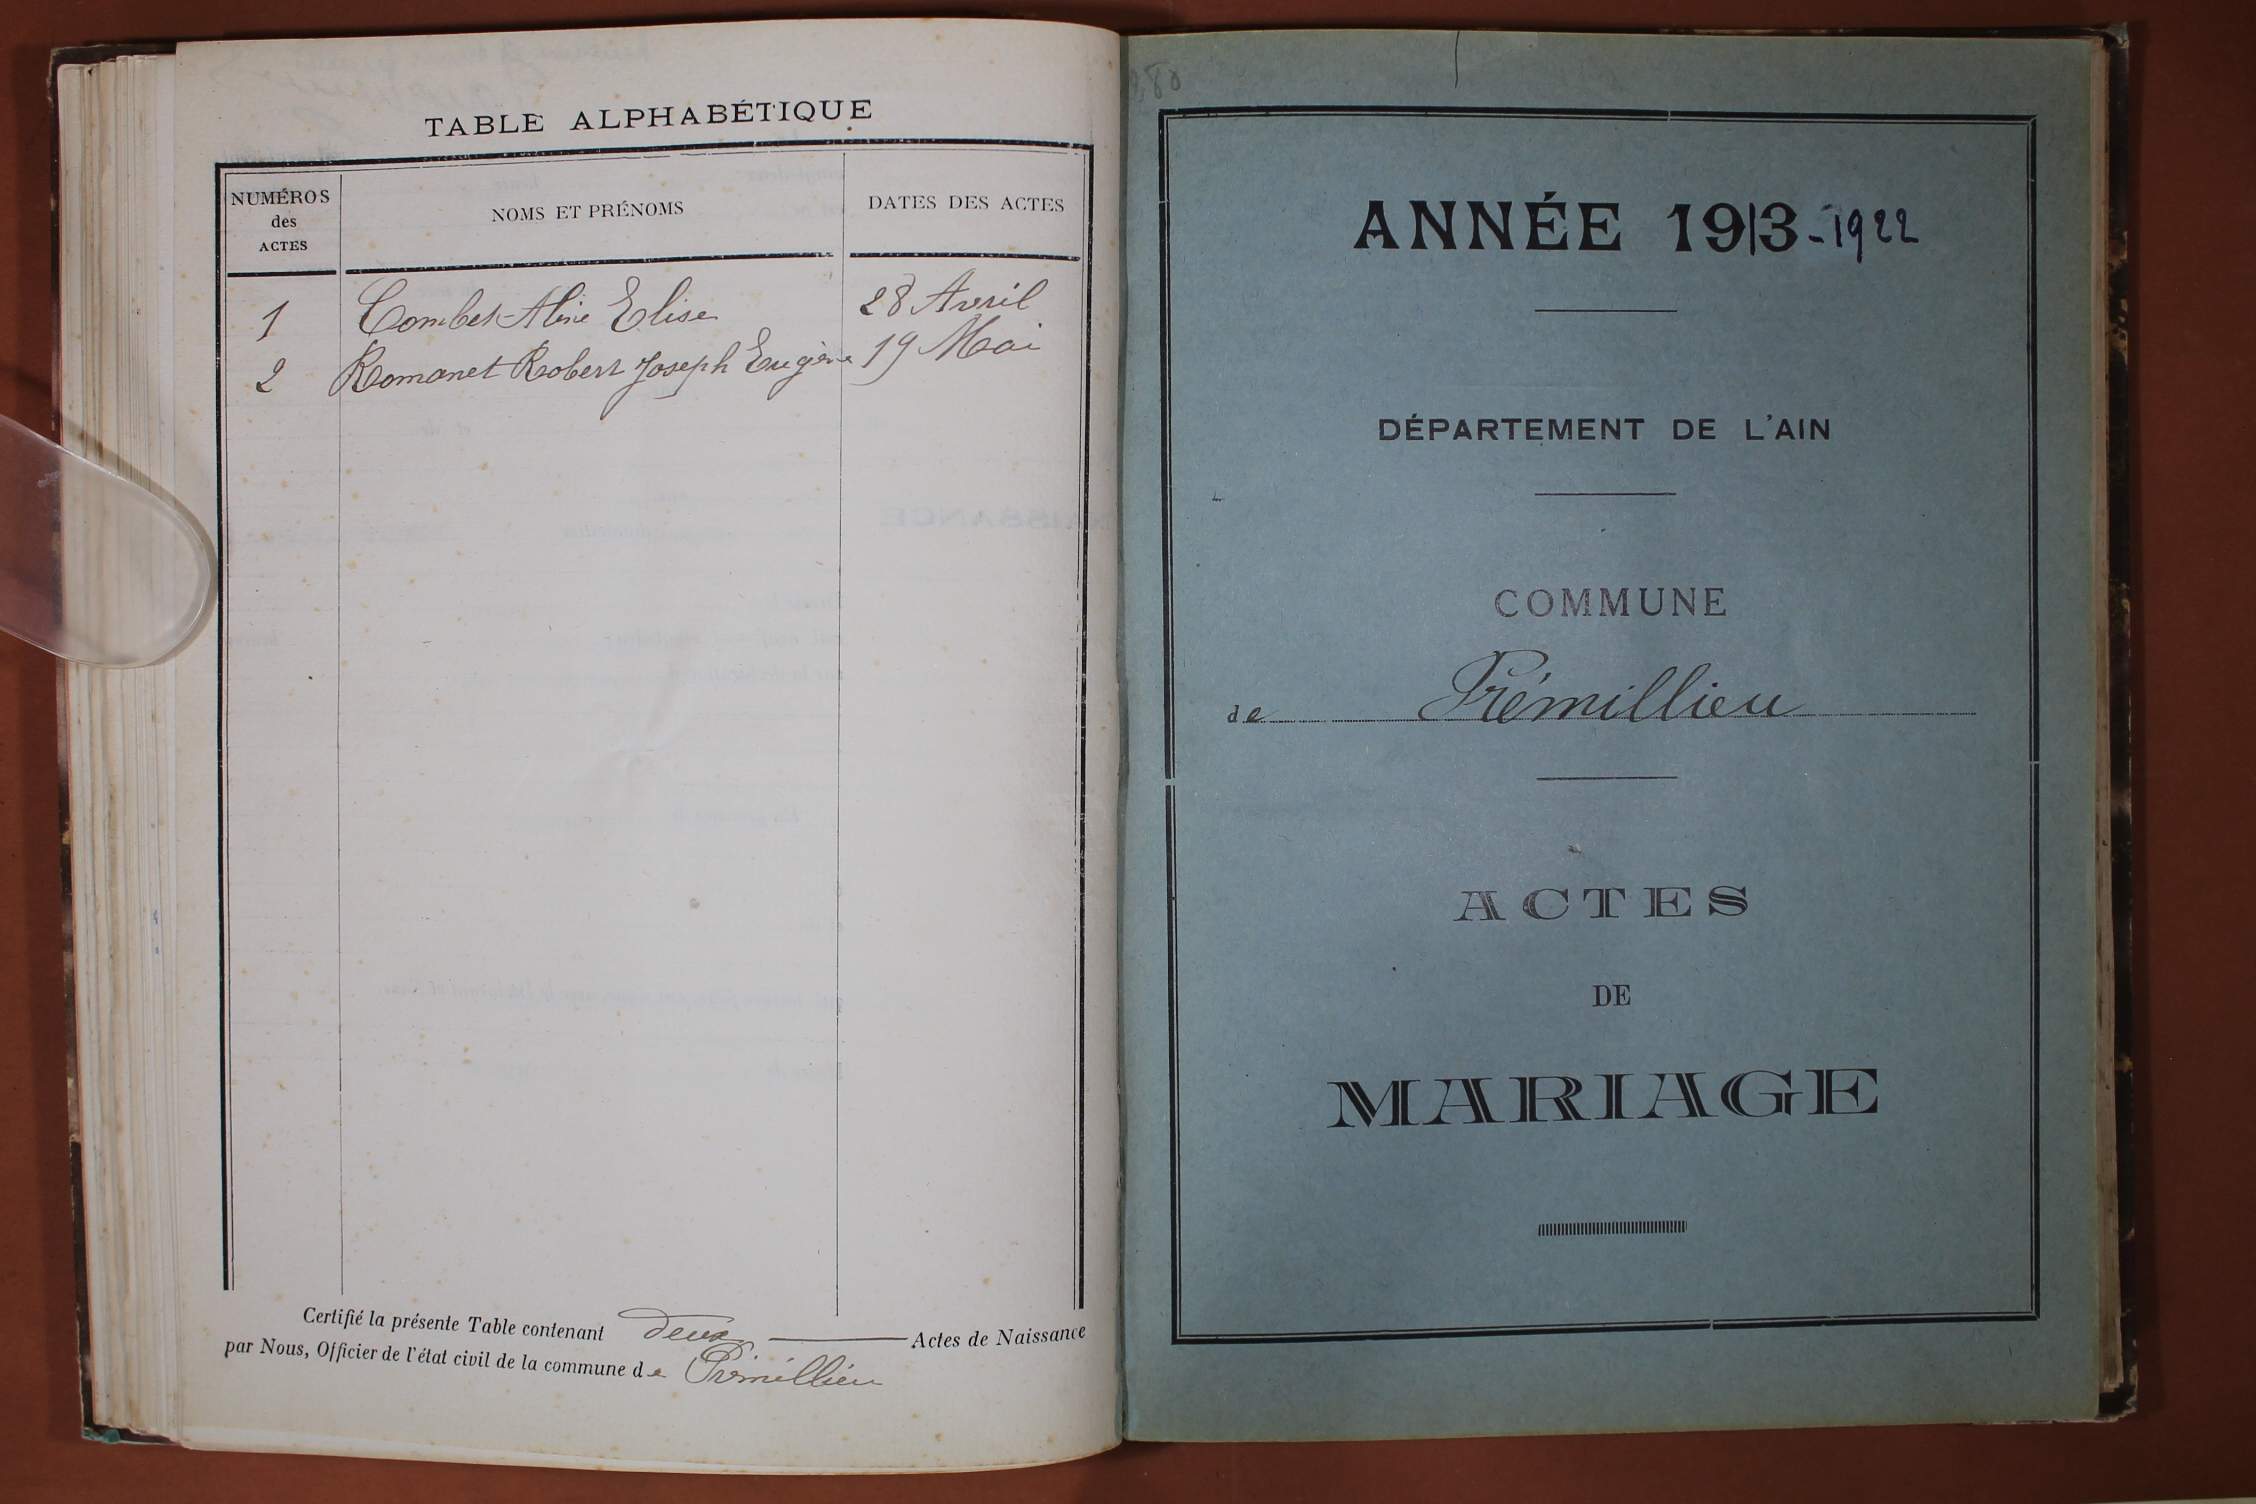 TABLE ALPHABÉTIQUE
NUMÉROS
des
ACTES
NOMS ET PRÉNOMS
DATES DES ACTES
1 Combet Aline Elise 28 Avril
2 Romanet Robert Joseph Eugène 19 Mai
Certifié la présente Table contenant deux Actes de Naissance
par Nous, Officier de l'état civil de la commune de Prémillieu
ANNÉE 1913-1922
DÉPARTEMENT DE L'AIN
COMMUNE
de Prémillieu
ACTES
DE
MARIAGE